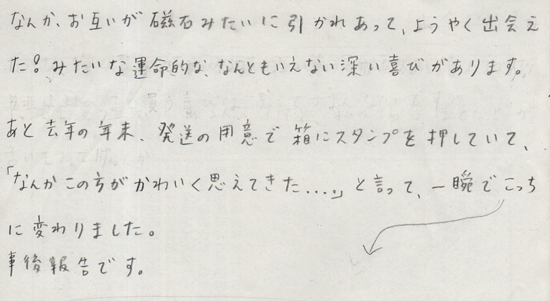 なんか、お互いが磁石みたいに引かれあって、ようやく出会え
た!みたいな運命的な、なんともいえない深い喜びがあります。
あと去年の年末、発送の用意で箱にスタンプを押していて、
「なんかこの方がかわいく思えてきた....」と言って、一瞬でこっち
に変わりました。
事後報告です。